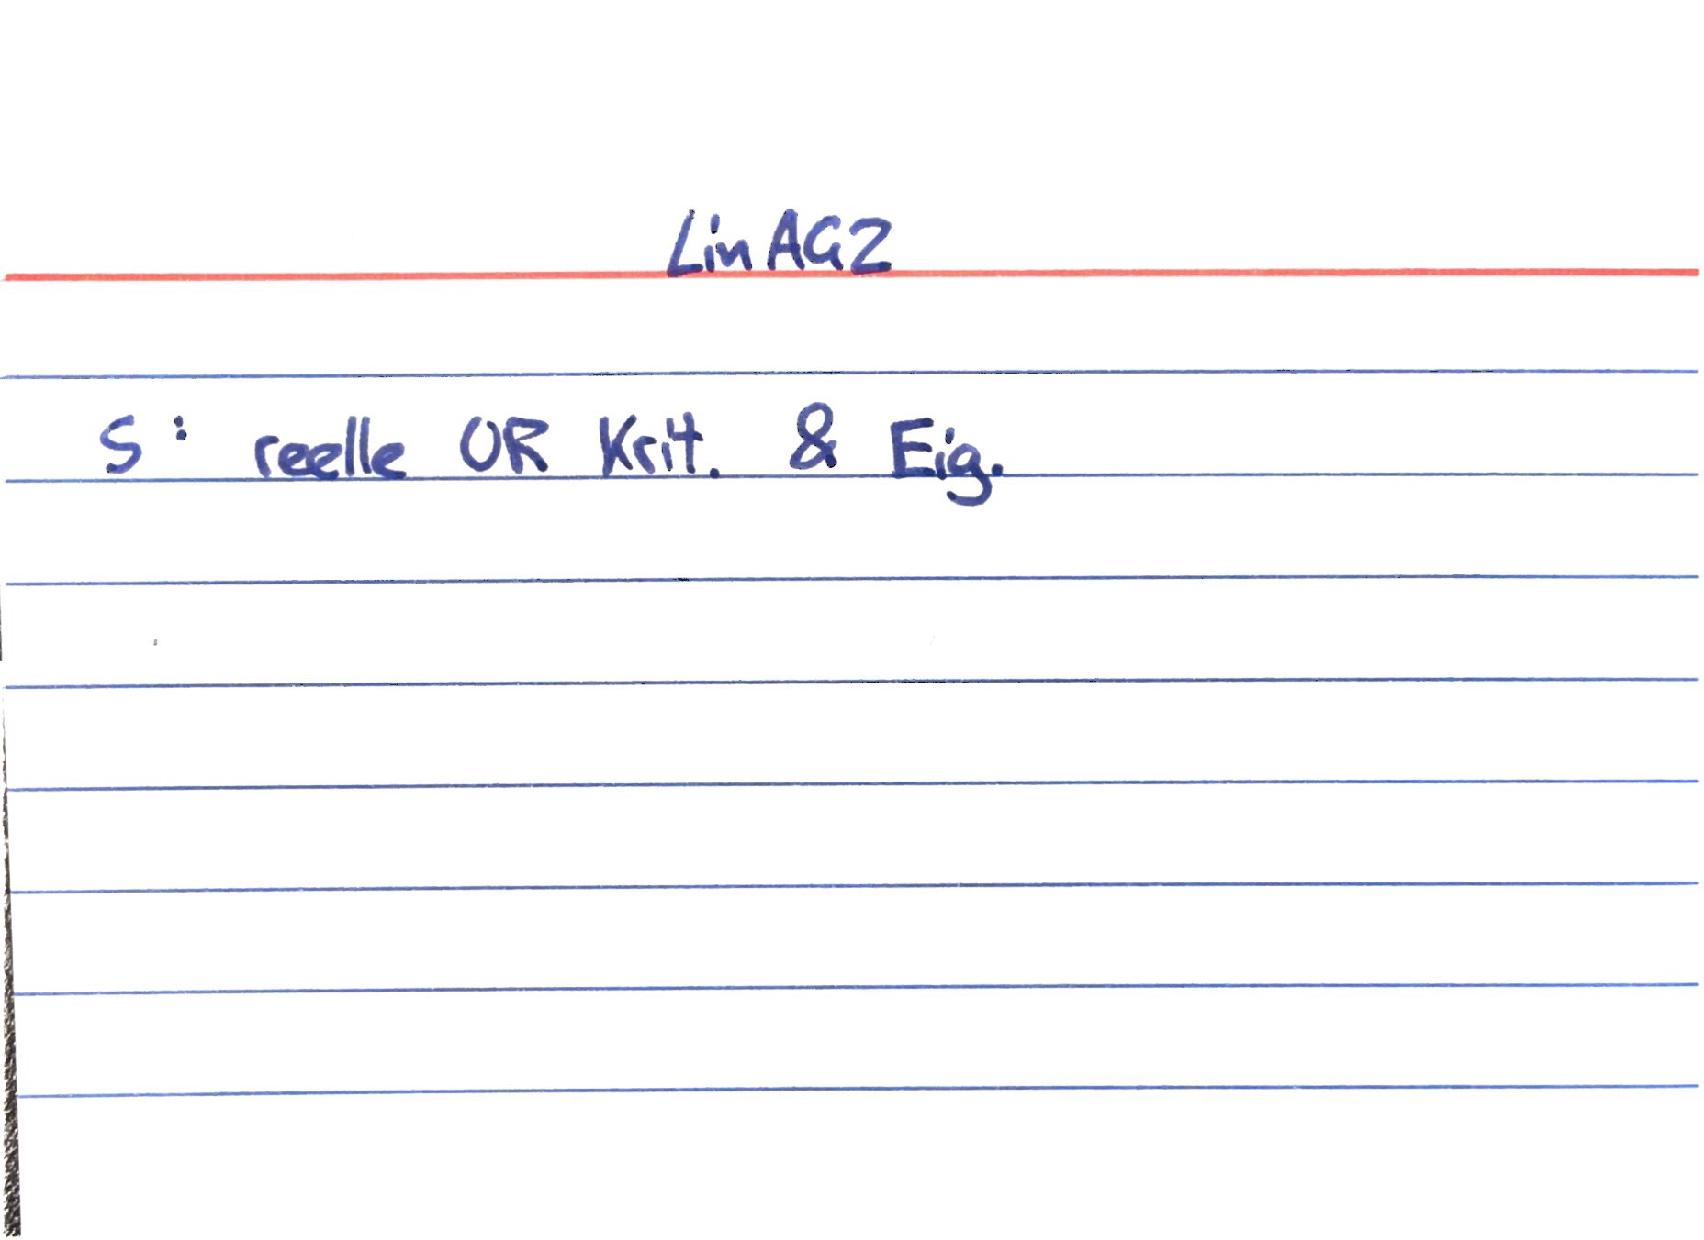 LinAG2
S: reelle UR Krit. & Eig.